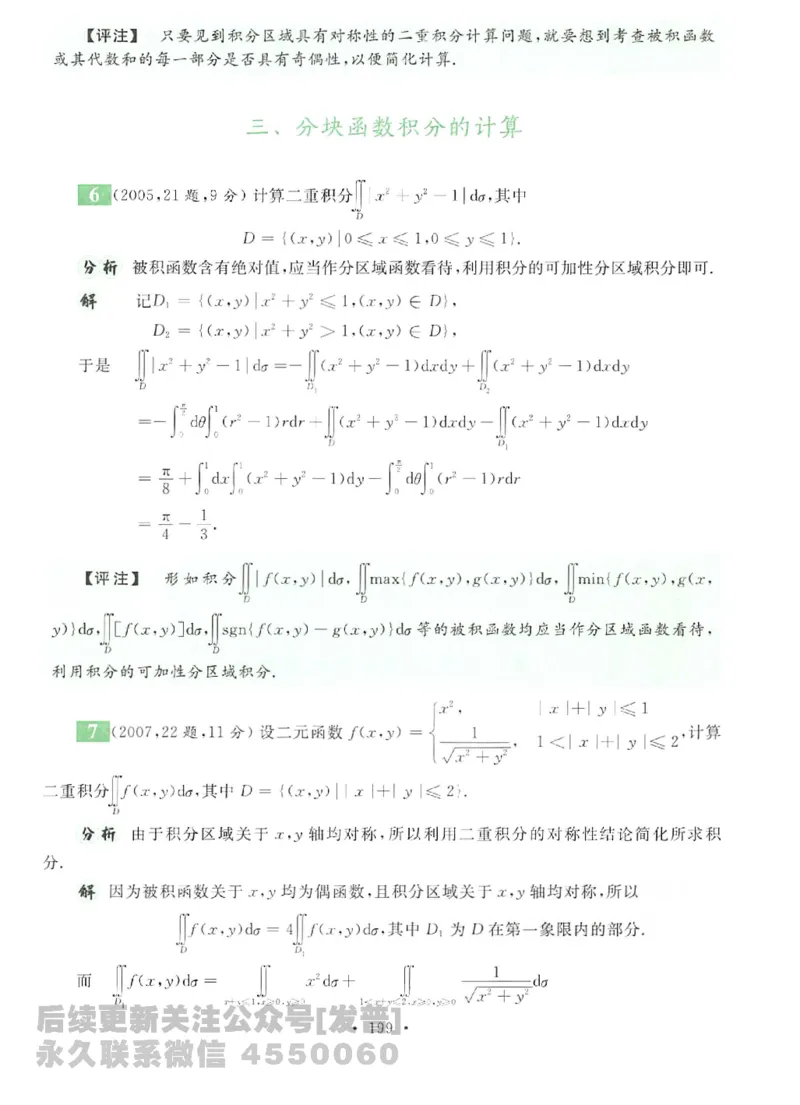 【评注】 只要见到积分区域具有对称性的二重积分计算问题,就要想到考查被积函数
或其代数和的每一部分是否具有奇偶性,以便简化计算.
三、分块函数积分的计算
6 (2005,21题,9分)计算二重积分∬_D |x²+y²−1|dσ,其中
D = {(x,y)|0⩽x⩽1,0⩽y⩽1}.
分析 被积函数含有绝对值,应当作分区域函数看待,利用积分的可加性分区域积分即可.
解 记D₁ = {(x,y)|x²+y²⩽1,(x,y)∈D},
D₂ = {(x,y)|x²+y²>1,(x,y)∈D},
于是 ∬_D |x²+y²−1|dσ =−∬_{D₁}(x²+y²−1)dxdy+∬_{D₂}(x²+y²−1)dxdy
=−∫_0^{π/2}dθ∫_0^1(r²−1)rdr+∬_D(x²+y²−1)dxdy−∬_{D₁}(x²+y²−1)dxdy
= π/8+∫_0^1dx∫_0^1(x²+y²−1)dy−∫_0^{π/2}dθ∫_0^1(r²−1)rdr
= π/4 − 1/3.
【评注】 形如积分∬_D|f(x,y)|dσ,∬_D max{f(x,y),g(x,y)}dσ,∬_D min{f(x,y),g(x,
y)}dσ,∬_D[f(x,y)]dσ,∬_D sgn{f(x,y)−g(x,y)}dσ等的被积函数均应当作分区域函数看待,
利用积分的可加性分区域积分.
7 (2007,22题,11分)设二元函数 f(x,y) = {x², |x|+|y|⩽1; 1/√(x²+y²), 1<|x|+|y|⩽2 ,计算
二重积分∬_D f(x,y)dσ,其中 D = {(x,y)||x|+|y|⩽2}.
分析 由于积分区域关于 x,y 轴均对称,所以利用二重积分的对称性结论简化所求积
分.
解 因为被积函数关于 x,y 均为偶函数,且积分区域关于 x,y 轴均对称,所以
∬_D f(x,y)dσ = 4∬_{D₁} f(x,y)dσ,其中 D₁ 为 D 在第一象限内的部分.
而 ∬_{D₁} f(x,y)dσ = ∬_{x+y⩽1,x⩾0,y⩾0} x²dσ+ ∬_{1⩽x+y⩽2,x⩾0,y⩾0} 1/√(x²+y²) dσ
• 199 •
后续更新关注公众号[发普]
永久联系微信 4550060